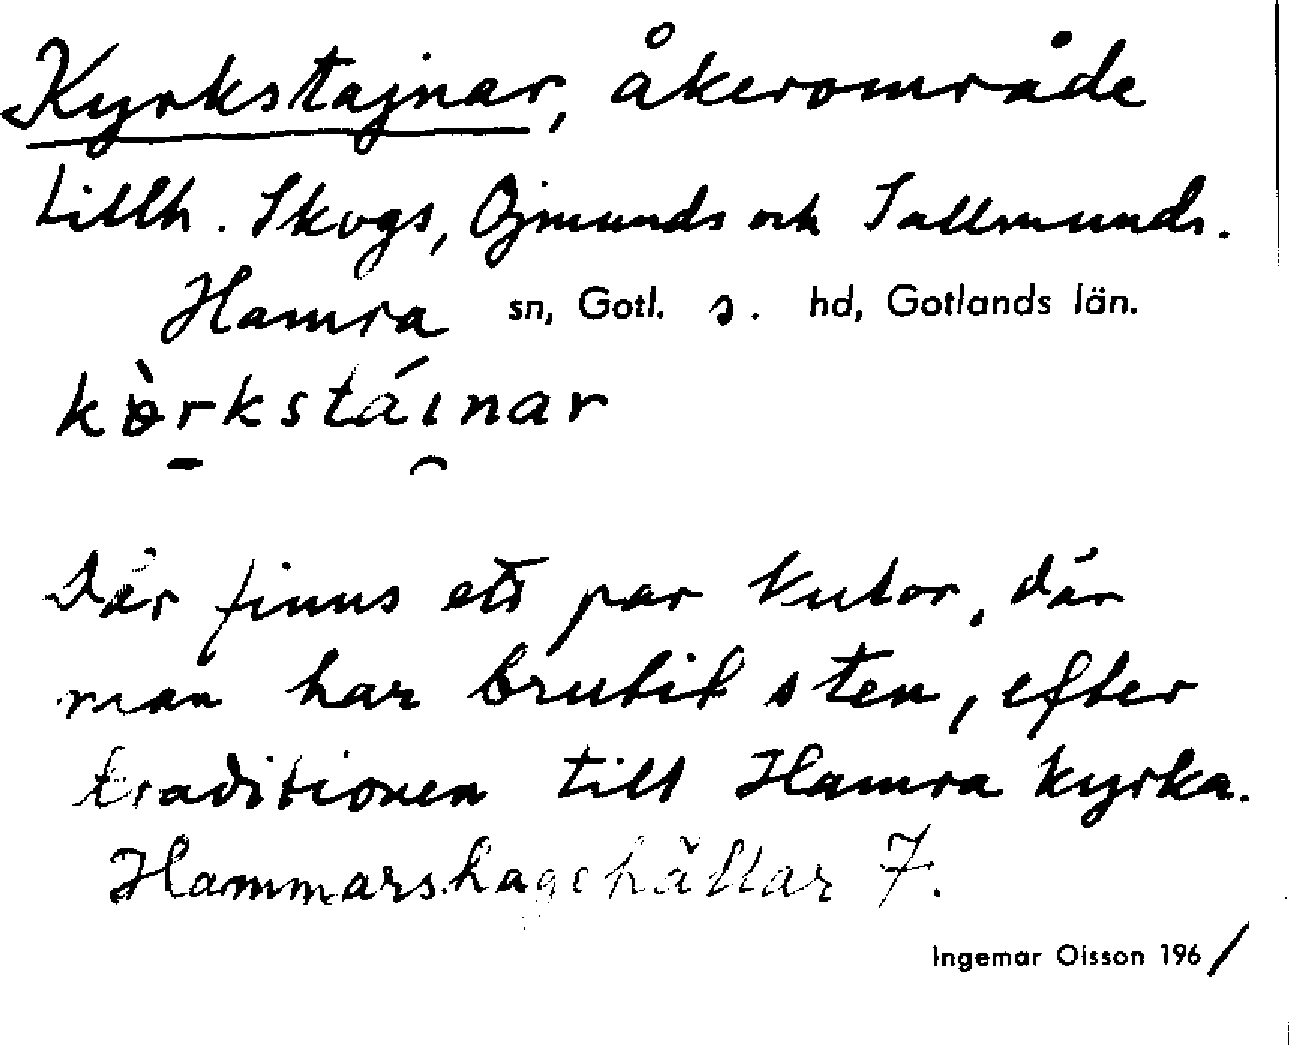 Kyrkstajnar, åkerområde
tillh. Skogs, Ojmunds och Sallmunds.
Hamra sn, Gotl. s. hd, Gotlands län.
kò̵rkstáınar
Där finns ett par kutor, där
man har brutit sten, efter
traditionen till Hamra kyrka.
Hammarshagehällar 7.
Ingemar Olsson 196/